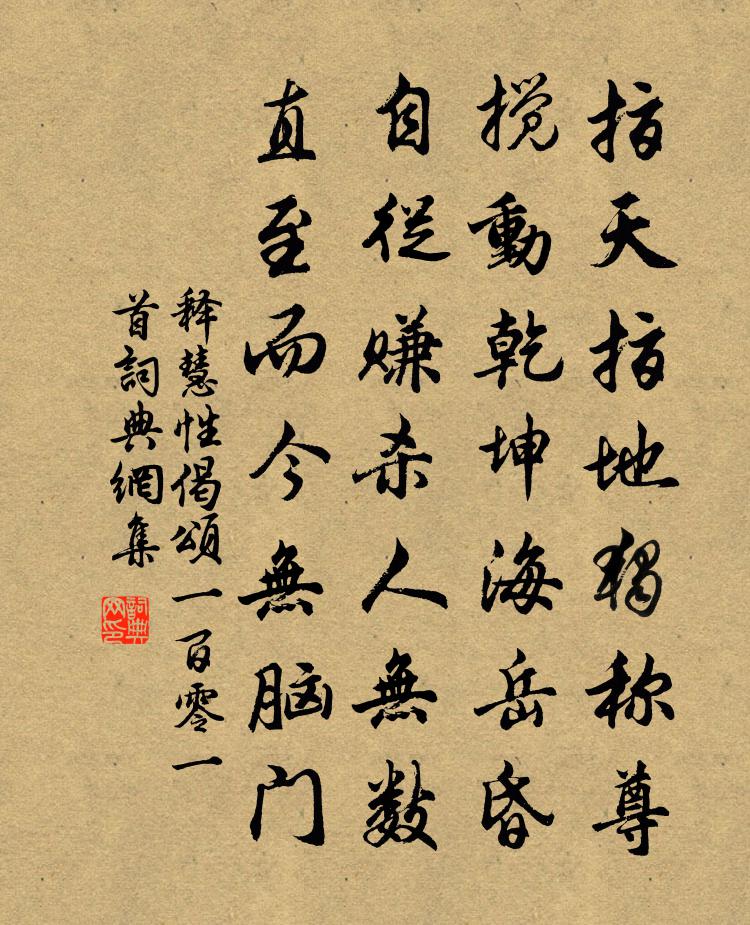 指天指地独称尊
搅動乾坤海岳昏
自從赚杀人無数
直至而今無脑门
释慧性偈頌一百零一
首詞典網集
詞典网印